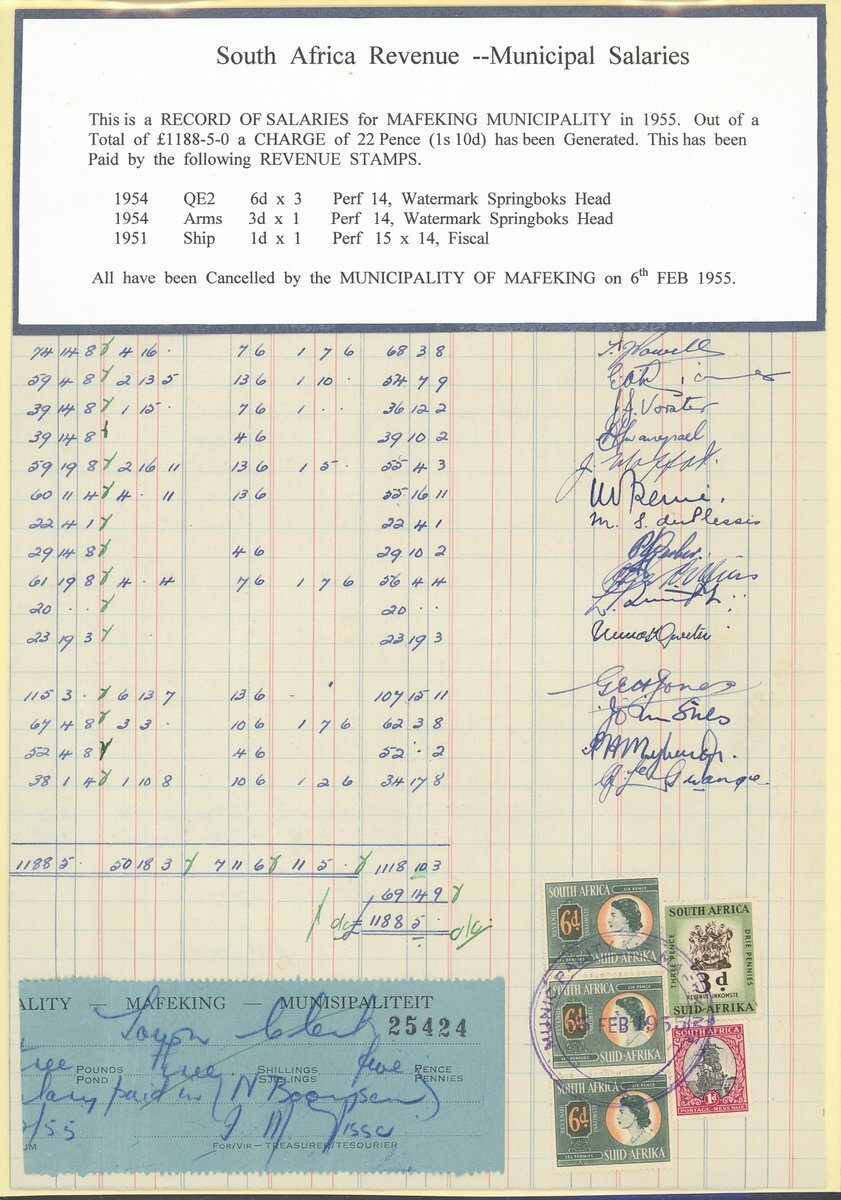 South Africa Revenue --Municipal Salaries
This is a RECORD OF SALARIES for MAFEKING MUNICIPALITY in 1955. Out of a
Total of £1188-5-0 a CHARGE of 22 Pence (1s 10d) has been Generated. This has been
Paid by the following REVENUE STAMPS.
1954 QE2 6d x 3 Perf 14, Watermark Springboks Head
1954 Arms 3d x 1 Perf 14, Watermark Springboks Head
1951 Ship 1d x 1 Perf 15 x 14, Fiscal
All have been Cancelled by the MUNICIPALITY OF MAFEKING on 6th FEB 1955.
74 14 8 4 16 . 7 6 1 7 6 68 3 8
59 4 8 2 13 5 13 6 1 10 . 54 7 9
39 14 8 1 15 . 7 6 1 . . 36 12 2 J. J. Vorster
39 14 8 4 6 39 10 2
59 19 8 2 16 11 13 6 1 5 . 55 4 3 J. Moffat.
60 11 4 4 . 11 13 6 55 16 11
22 4 1 22 4 1 M. S. du Plessis
29 14 8 4 6 29 10 2
61 19 8 4 . 4 7 6 1 7 6 56 4 4
20 . . 20 . .
23 19 3 23 19 3
115 3 . 6 13 7 13 6 . . 107 15 11 Geo Jones
67 4 8 3 3 . 10 6 1 7 6 62 3 8
52 4 8 4 6 52 . 2
38 1 4 1 10 8 10 6 1 2 6 34 17 8
1188 5 . 50 18 3 7 11 6 11 5 . 1118 10 3
69 14 9
£ 1188 5 .
ALITY — MAFEKING — MUNISIPALITEIT
Town Clerk 25424
three POUNDS POND three SHILLINGS SJIELINGS five PENCE PENNIES
lary paid in
/55
UM FOR/VIR — TREASURER/TESOURIER
SOUTH AFRICA SIX PENCE
REVENUE INKOMSTE 6d
SES PENNIES SUID-AFRIKA
SOUTH AFRICA SIX PENCE
REVENUE INKOMSTE 6d
SES PENNIES SUID-AFRIKA
SOUTH AFRICA SIX PENCE
REVENUE INKOMSTE 6d
SES PENNIES SUID-AFRIKA
SOUTH AFRICA
THREE PENCE DRIE PENNIES
3d
REVENUE INKOMSTE
SUID-AFRIKA
1d
POSTAGE-REVENUE
FEB 1955